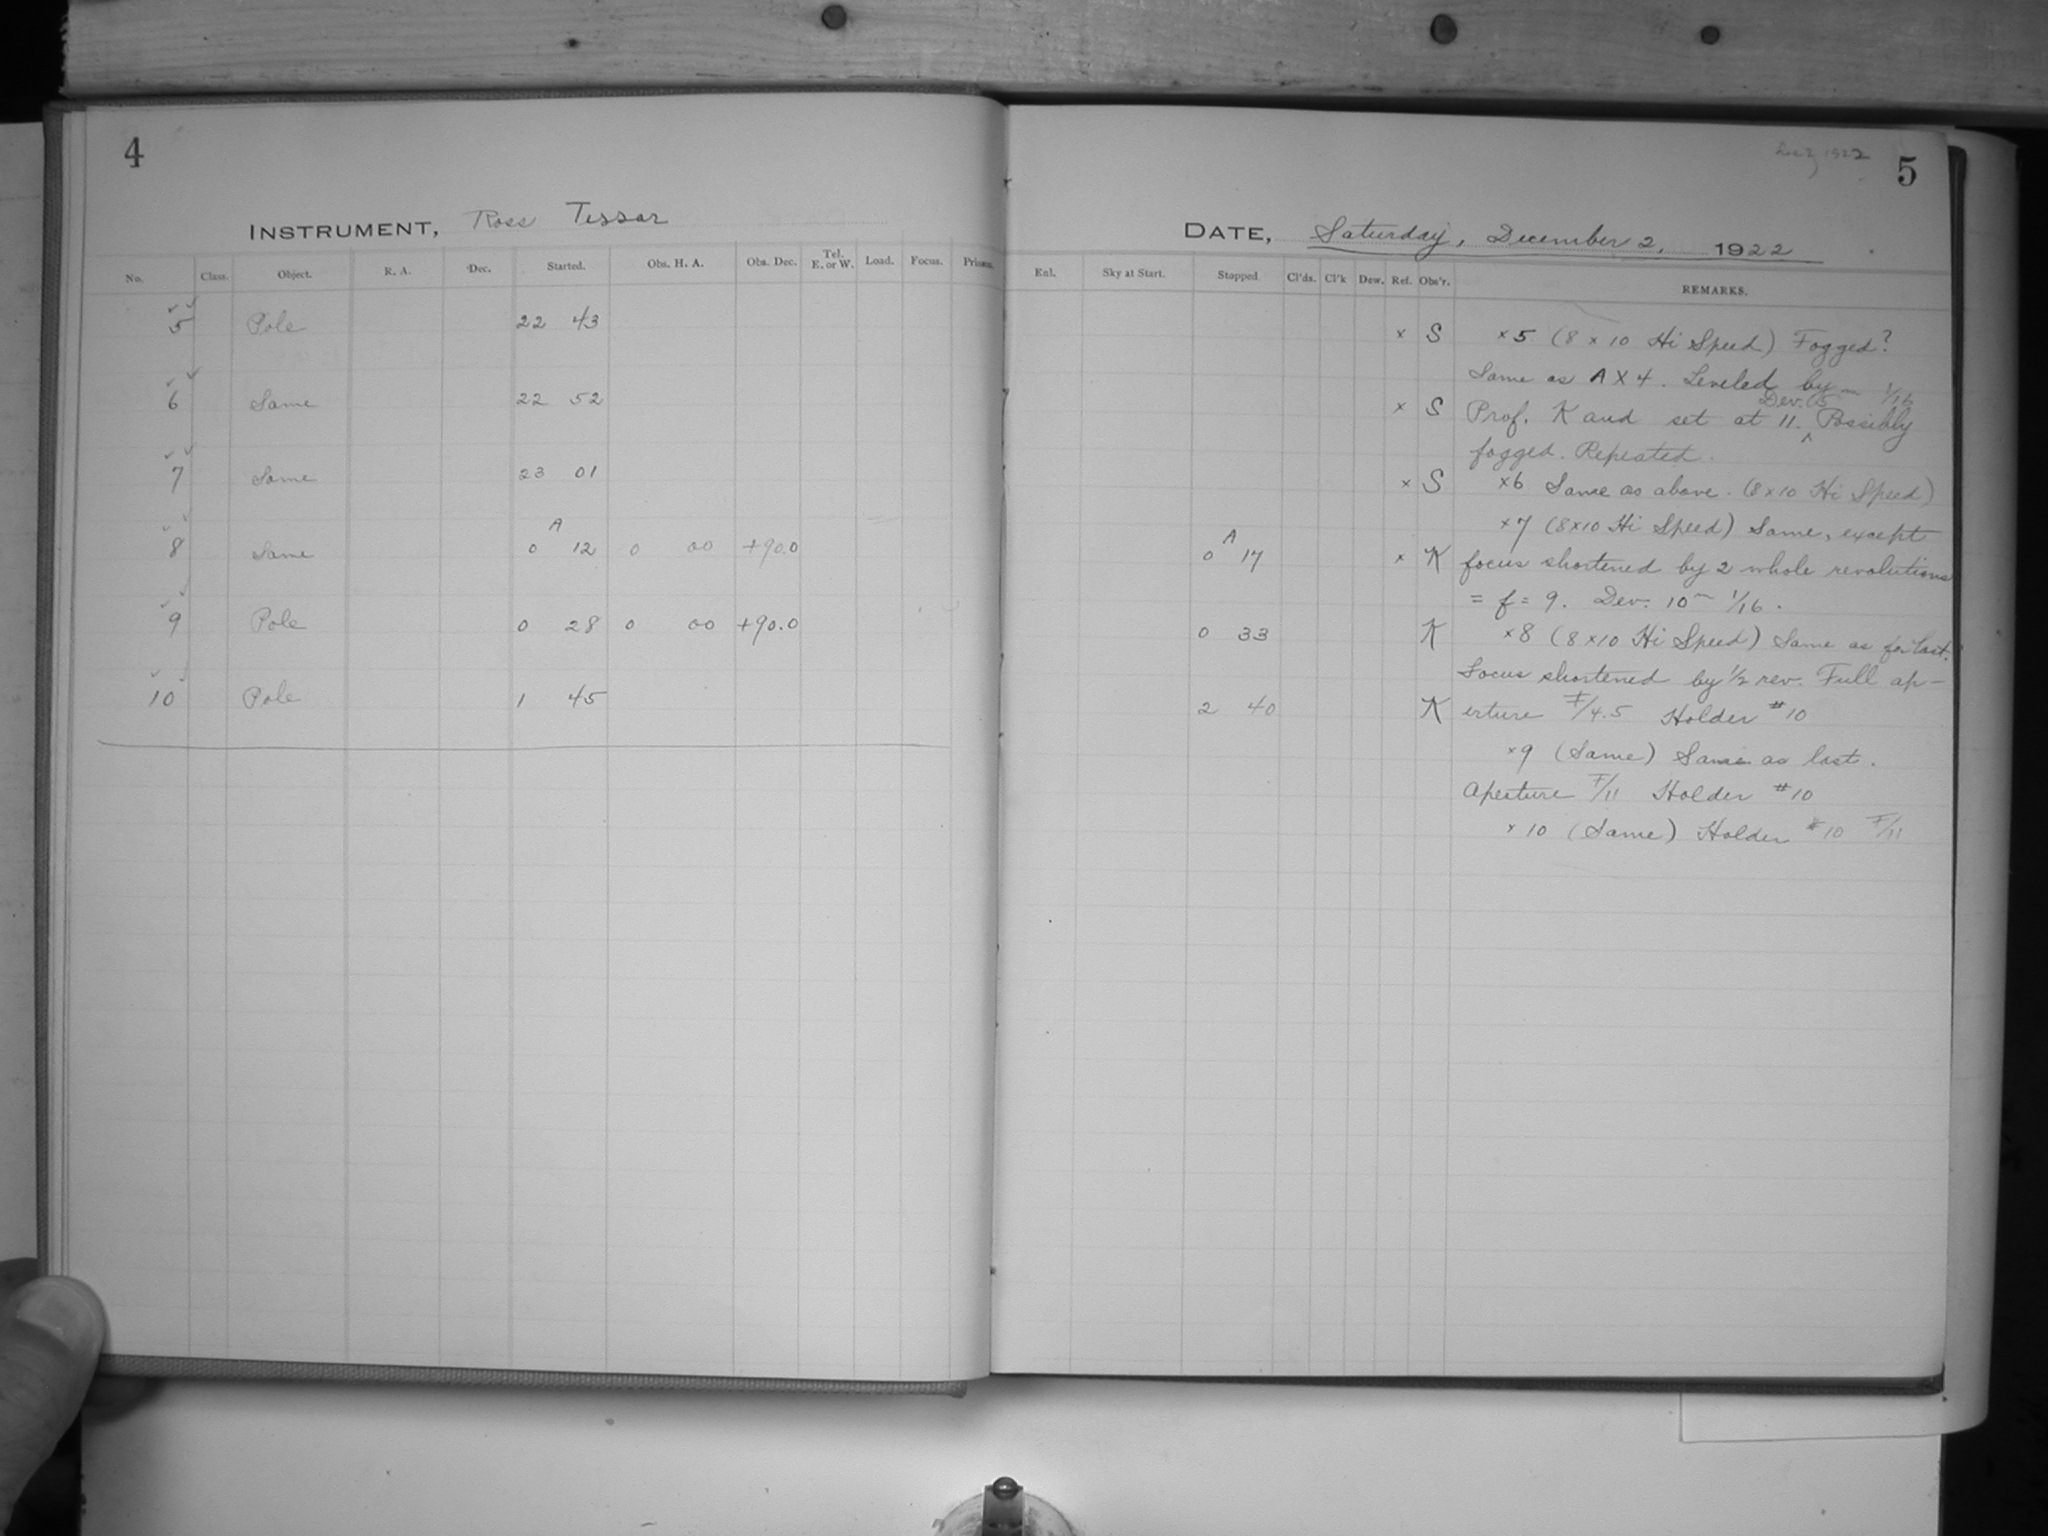 4
INSTRUMENT, Ross Tessar
No. Class. Object. R. A. Dec. Started. Obs. H. A. Obs. Dec. Tel. E. or W. Load. Focus. Prism.
5 Pole 22 43
6 Same 22 52
7 Same 23 01
A
8 Same 0 12 0 00 +90.0
9 Pole 0 28 0 00 +90.0
10 Pole 1 45
Dec 2, 1922
5
DATE, Saturday, December 2, 1922
Enl. Sky at Start. Stopped. Cl'ds. Cl'k Dew. Ref. Obs'r. REMARKS.
× S
× S
× S
A
0 17 × K
0 33 K
2 40 K
×5 (8 × 10 Hi Speed) Fogged?
Same as AX4. Leveled by
Dev. 15 m 1/16
Prof. K and set at 11. ^ Possibly
fogged. Repeated.
×6 Same as above. (8×10 Hi Speed)
×7 (8×10 Hi Speed) Same, except
focus shortened by 2 whole revolutions
= f = 9. Dev. 10m 1/16.
×8 (8×10 Hi Speed) Same as for last.
Focus shortened by 1/2 rev. Full ap-
erture F/4.5 Holder #10
×9 (Same) Same as last.
Aperture F/11 Holder #10
×10 (Same) Holder #10 F/11